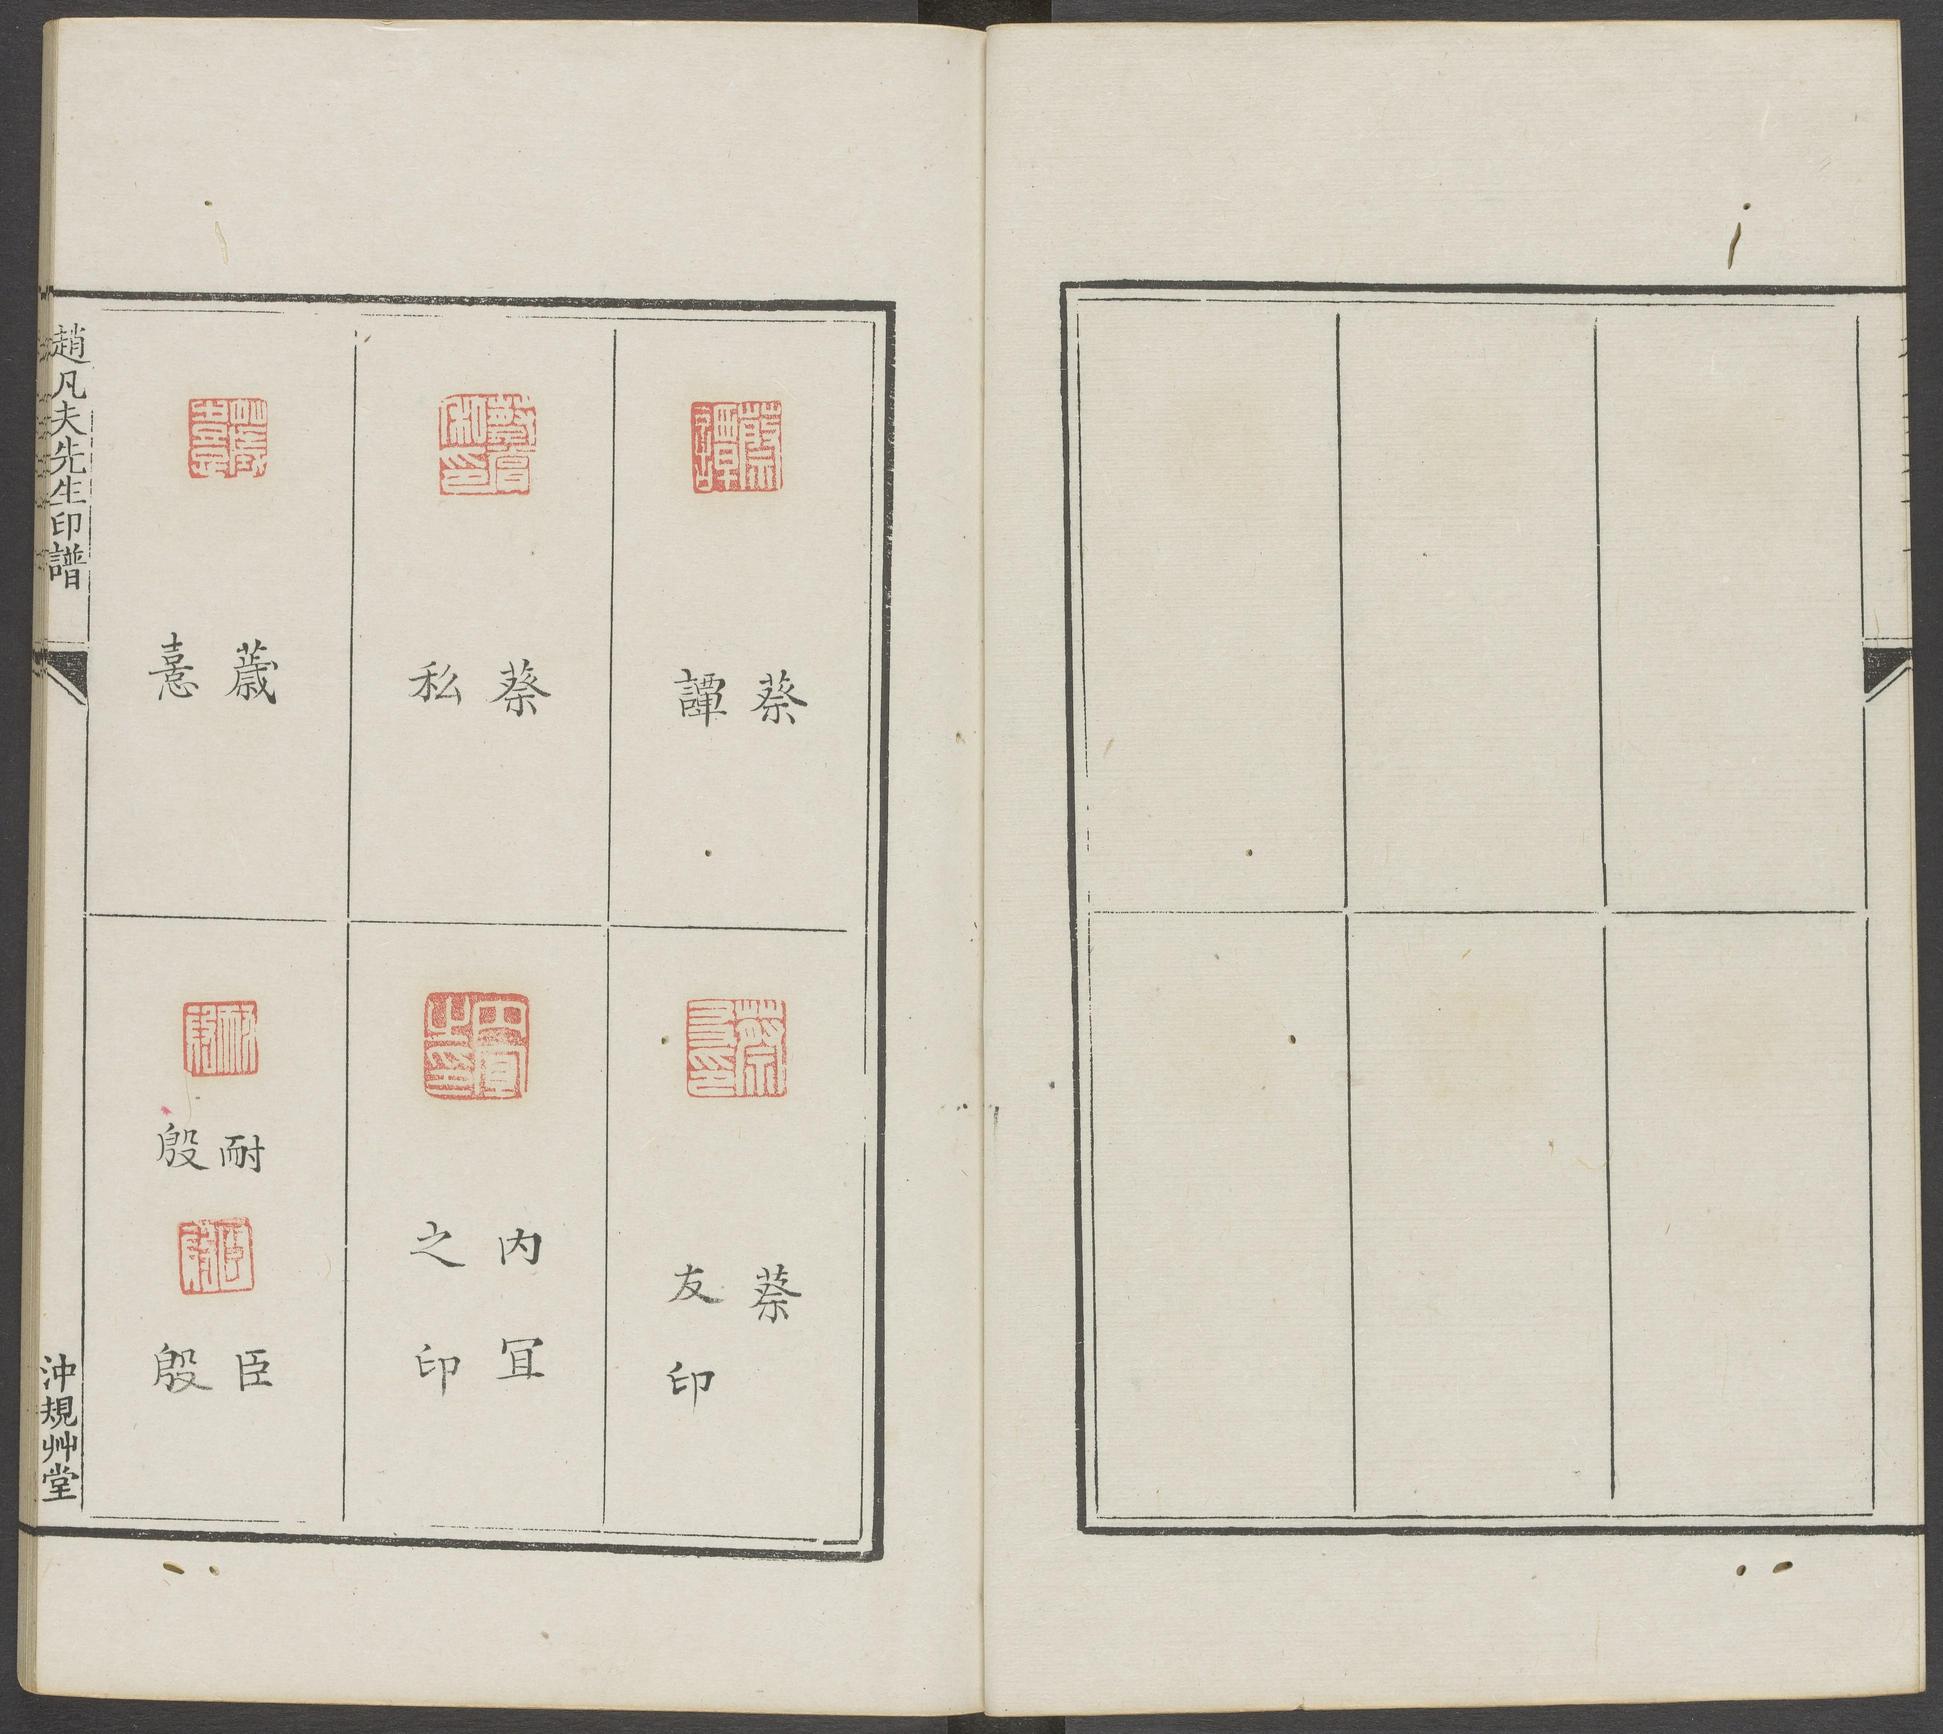 蔡
譚
蔡
友印
蔡
私
内冝
之印
蕆
憙
耐
殷
臣
殷
趙凡夫先生印譜
沖規艸堂